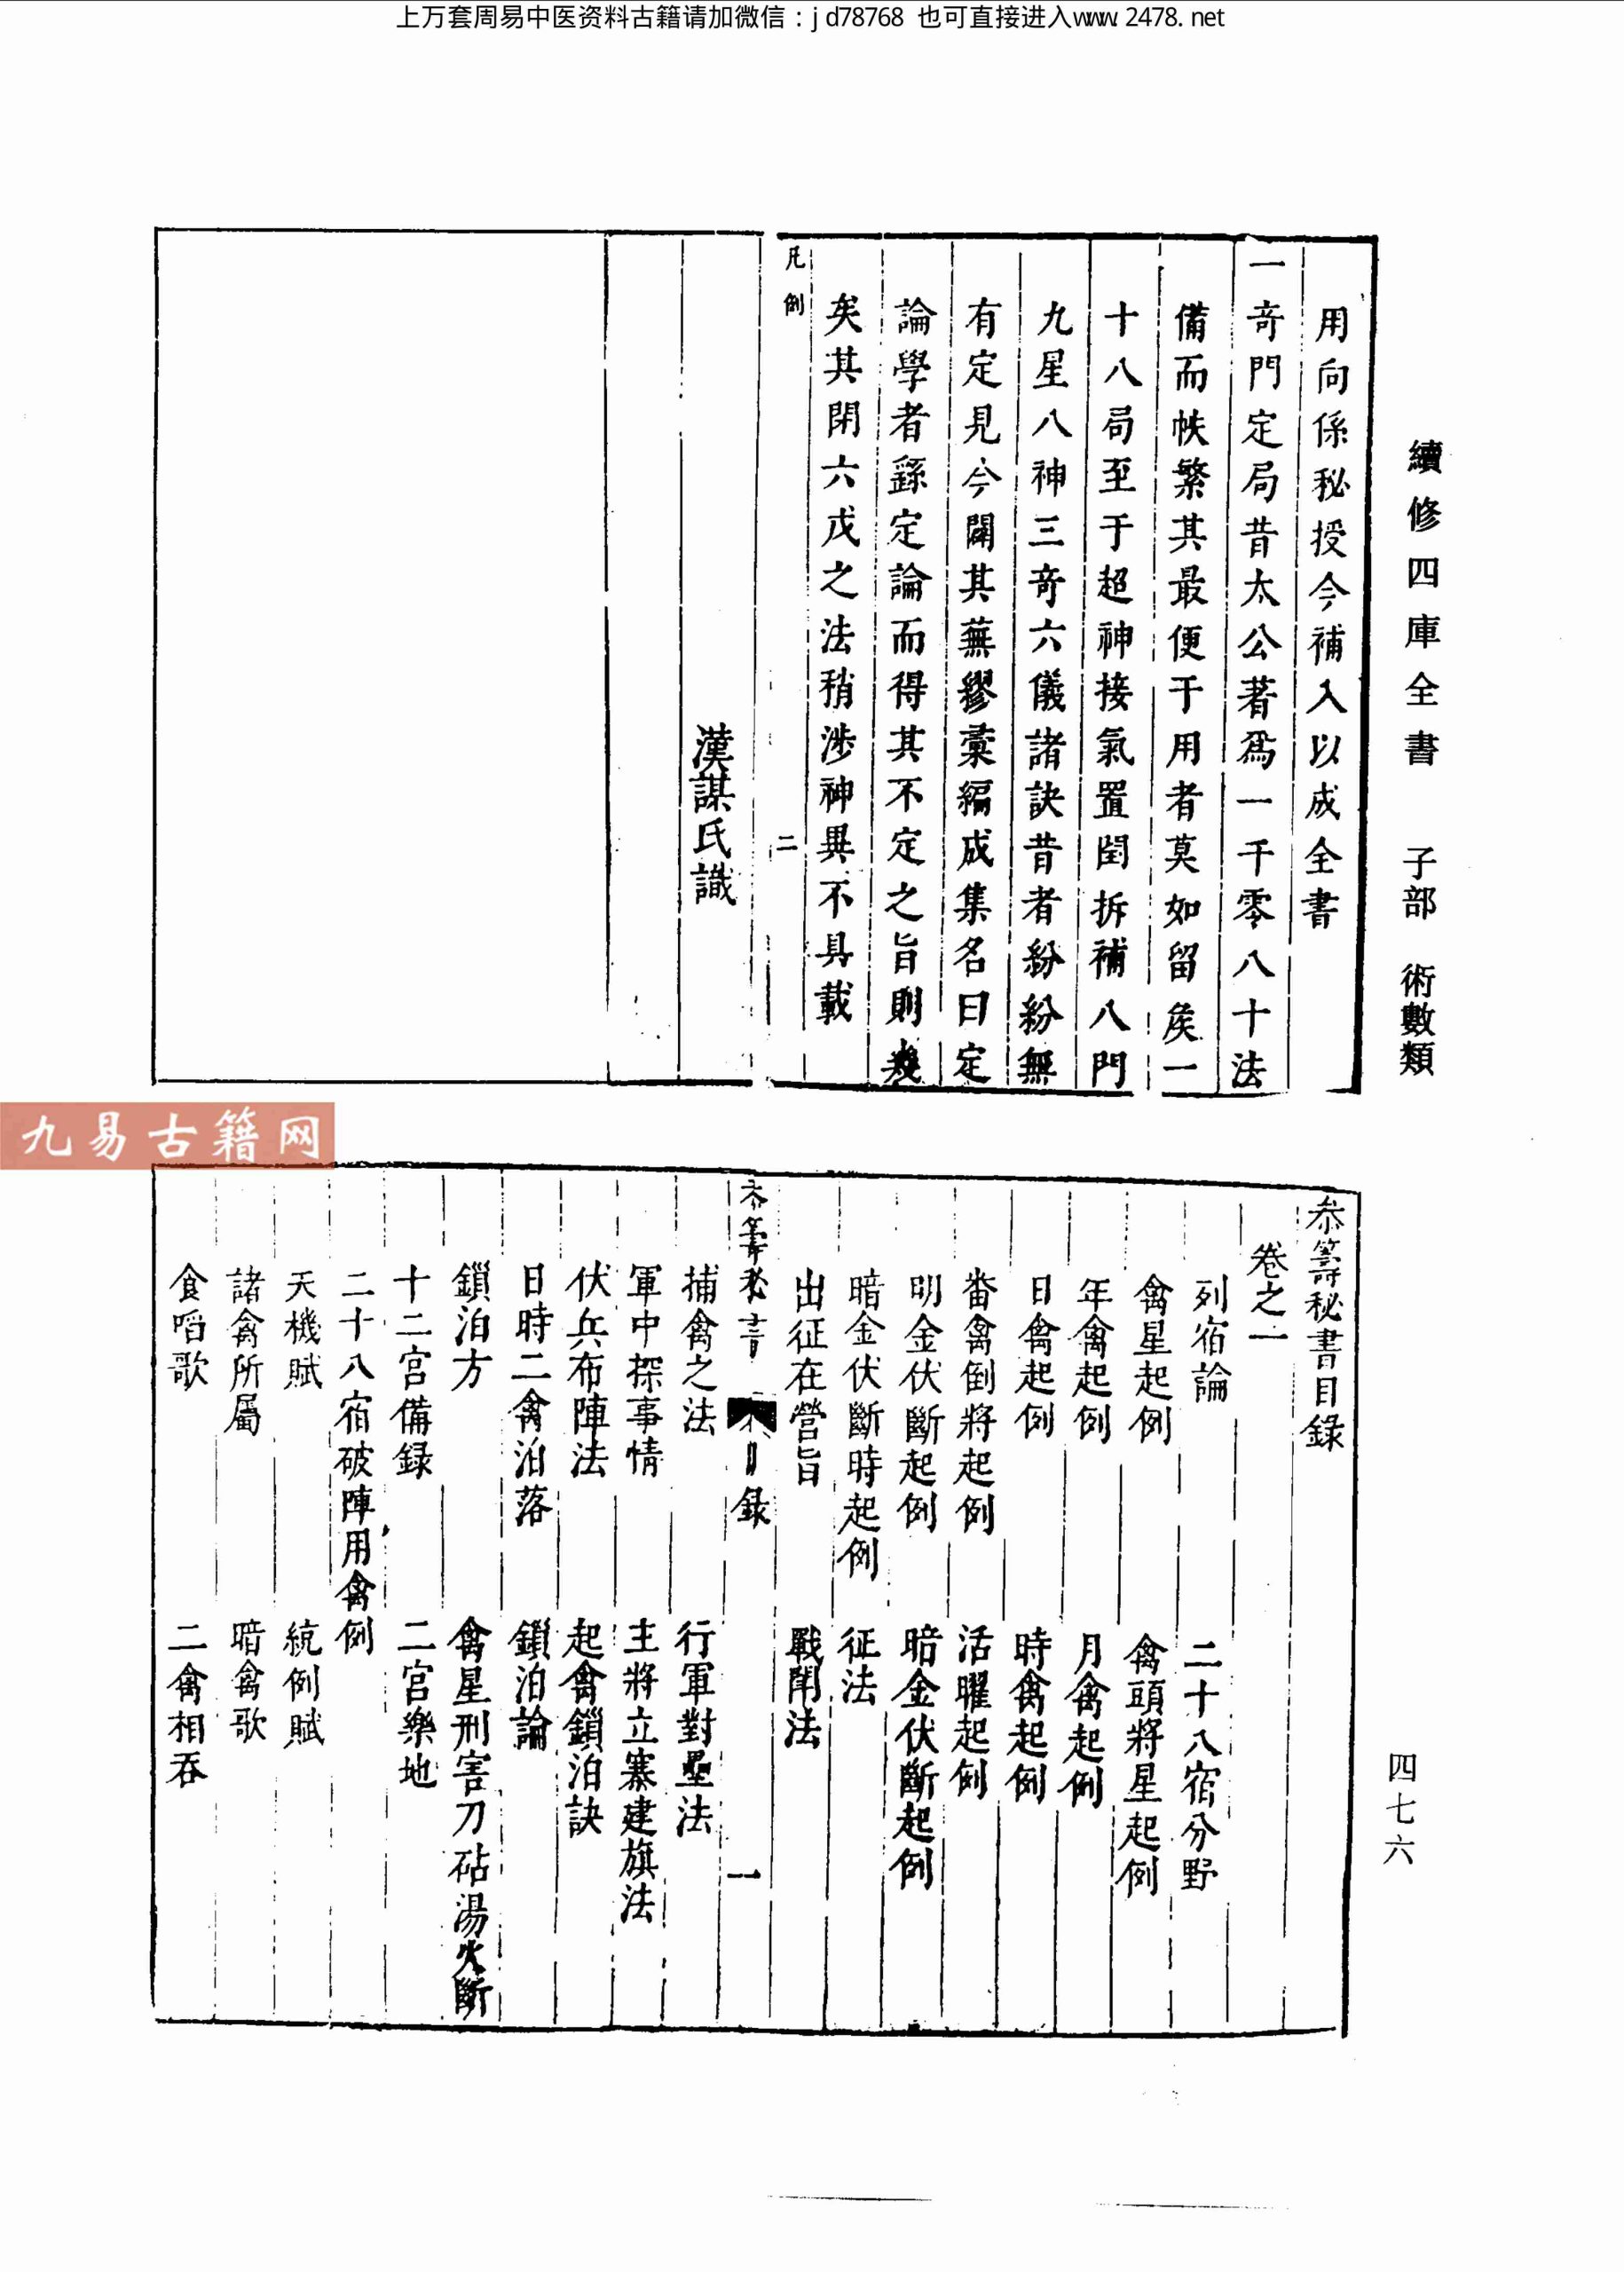 上万套周易中医资料古籍请加微信：jd78768 也可直接进入www.2478.net
續修四庫全書 子部 術數類
用向係秘授今補入以成全書
一奇門定局昔太公著爲一千零八十法
備而帙繁其最便于用者莫如留侯一
十八局至于超神接氣置閏拆補八門
九星八神三奇六儀諸訣昔者紛紛無
有定見今闢其蕪繆彙編成集名曰定
論學者繇定論而得其不定之旨則幾
矣其閉六戊之法稍涉神異不具載
凡例 二
漢謀氏識
九易古籍网
四七六
叅籌秘書目錄
卷之一
列宿論 二十八宿分野
禽星起例 禽頭將星起例
年禽起例 月禽起例
日禽起例 時禽起例
畨禽倒將起例 活曜起例
明金伏斷起例 暗金伏斷起例
暗金伏斷時起例 征法
出征在營旨 戰鬧法
叅籌秘書 目錄 一
捕禽之法 行軍對壘法
軍中探事情 主將立寨建旗法
伏兵布陣法 起禽鎖泊訣
日時二禽泊落 鎖泊論
鎖泊方 禽星刑害刀砧湯火斷
十二宮備録 二宮樂地
二十八宿破陣用禽例
天機賦 統例賦
諸禽所屬 暗禽歌
食啗歌 二禽相吞